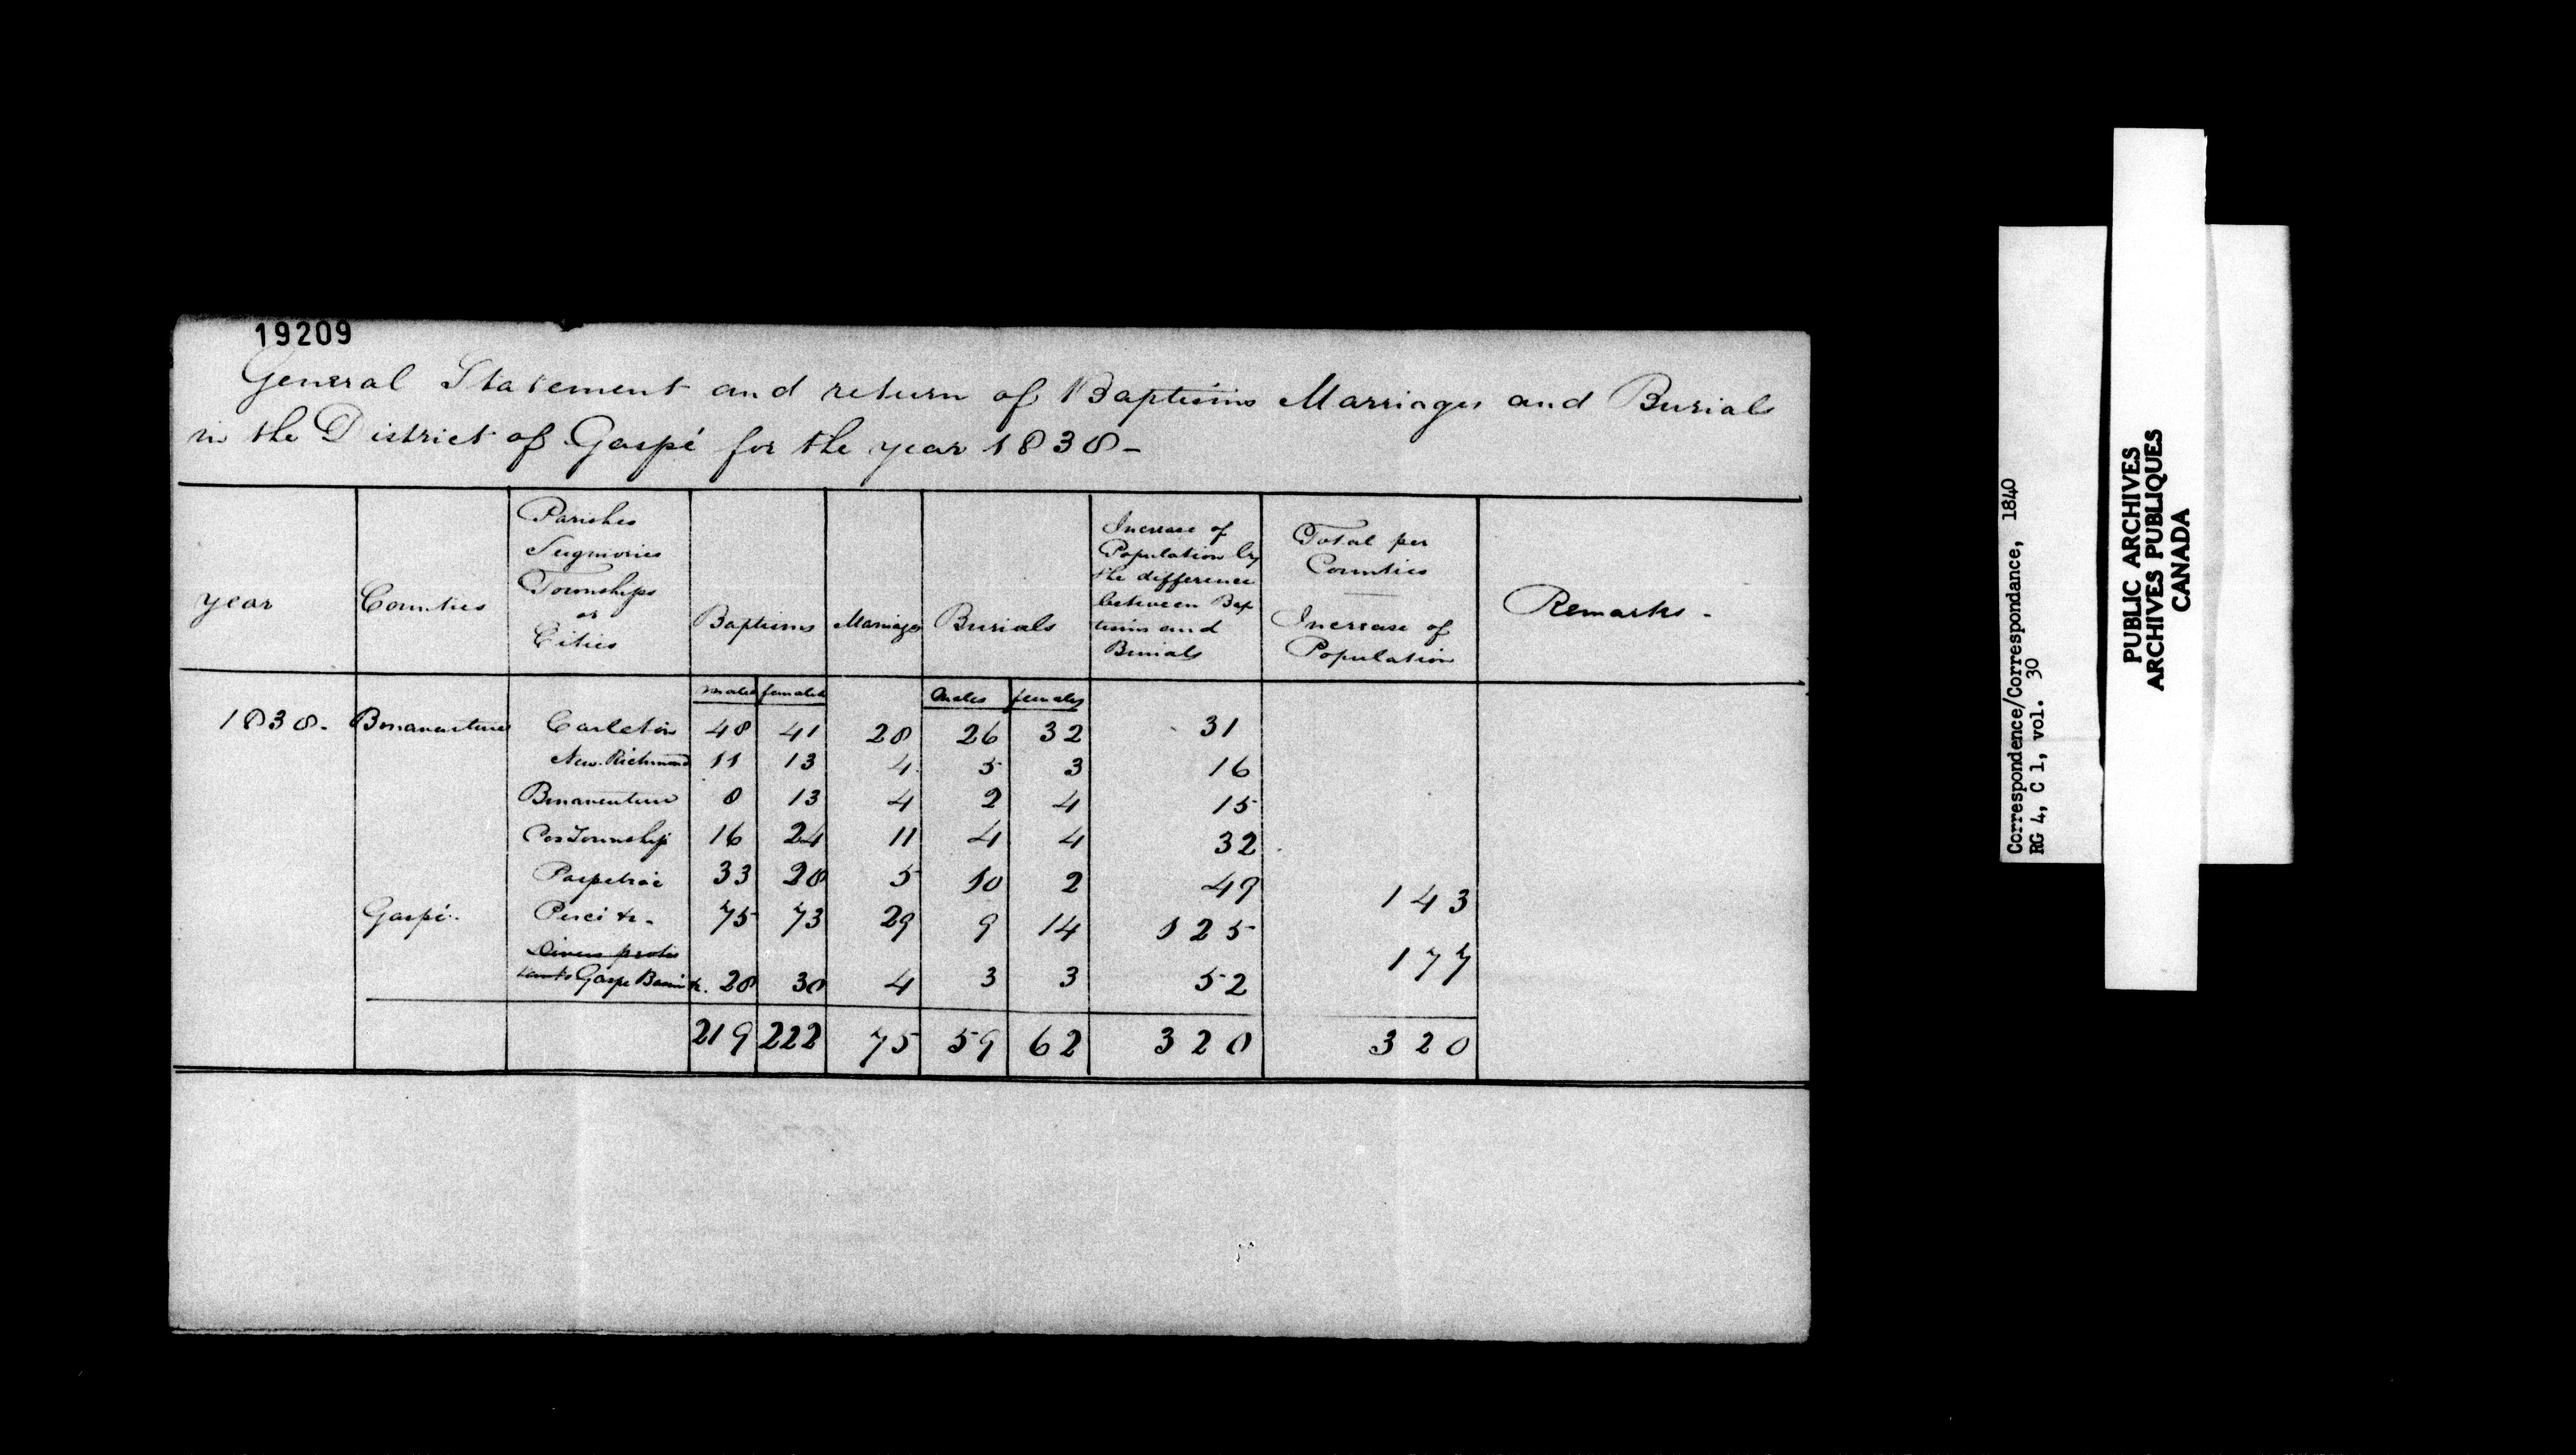 19209
General Statement and return of Baptisms Marriages and Burials
in the District of Gaspé for the year 1838-
year
Counties
Parishes
Seigniories
Townships
or
Cities
Baptisms
Marriages
Burials
Increase of
Population by
the difference
between Bap
tisms and
Burials
Total per
Counties
Increase of
Population
Remarks -
males females males females
1838- Bonaventure Carleton 48 41 28 26 32 31
New Richmond 11 13 4 5 3 16
Bonaventure 8 13 4 2 4 15
Cox Township 16 24 11 4 4 32
Paspebiac 33 28 5 10 2 49 143
Gaspé- Percé &c- 75 73 29 9 14 125
Divers protes
tants Gaspe Basin &c. 28 30 4 3 3 52 177
219 222 75 59 62 320 320
Correspondence/Correspondance, 1840
RG 4, C 1, vol. 30
PUBLIC ARCHIVES
ARCHIVES PUBLIQUES
CANADA